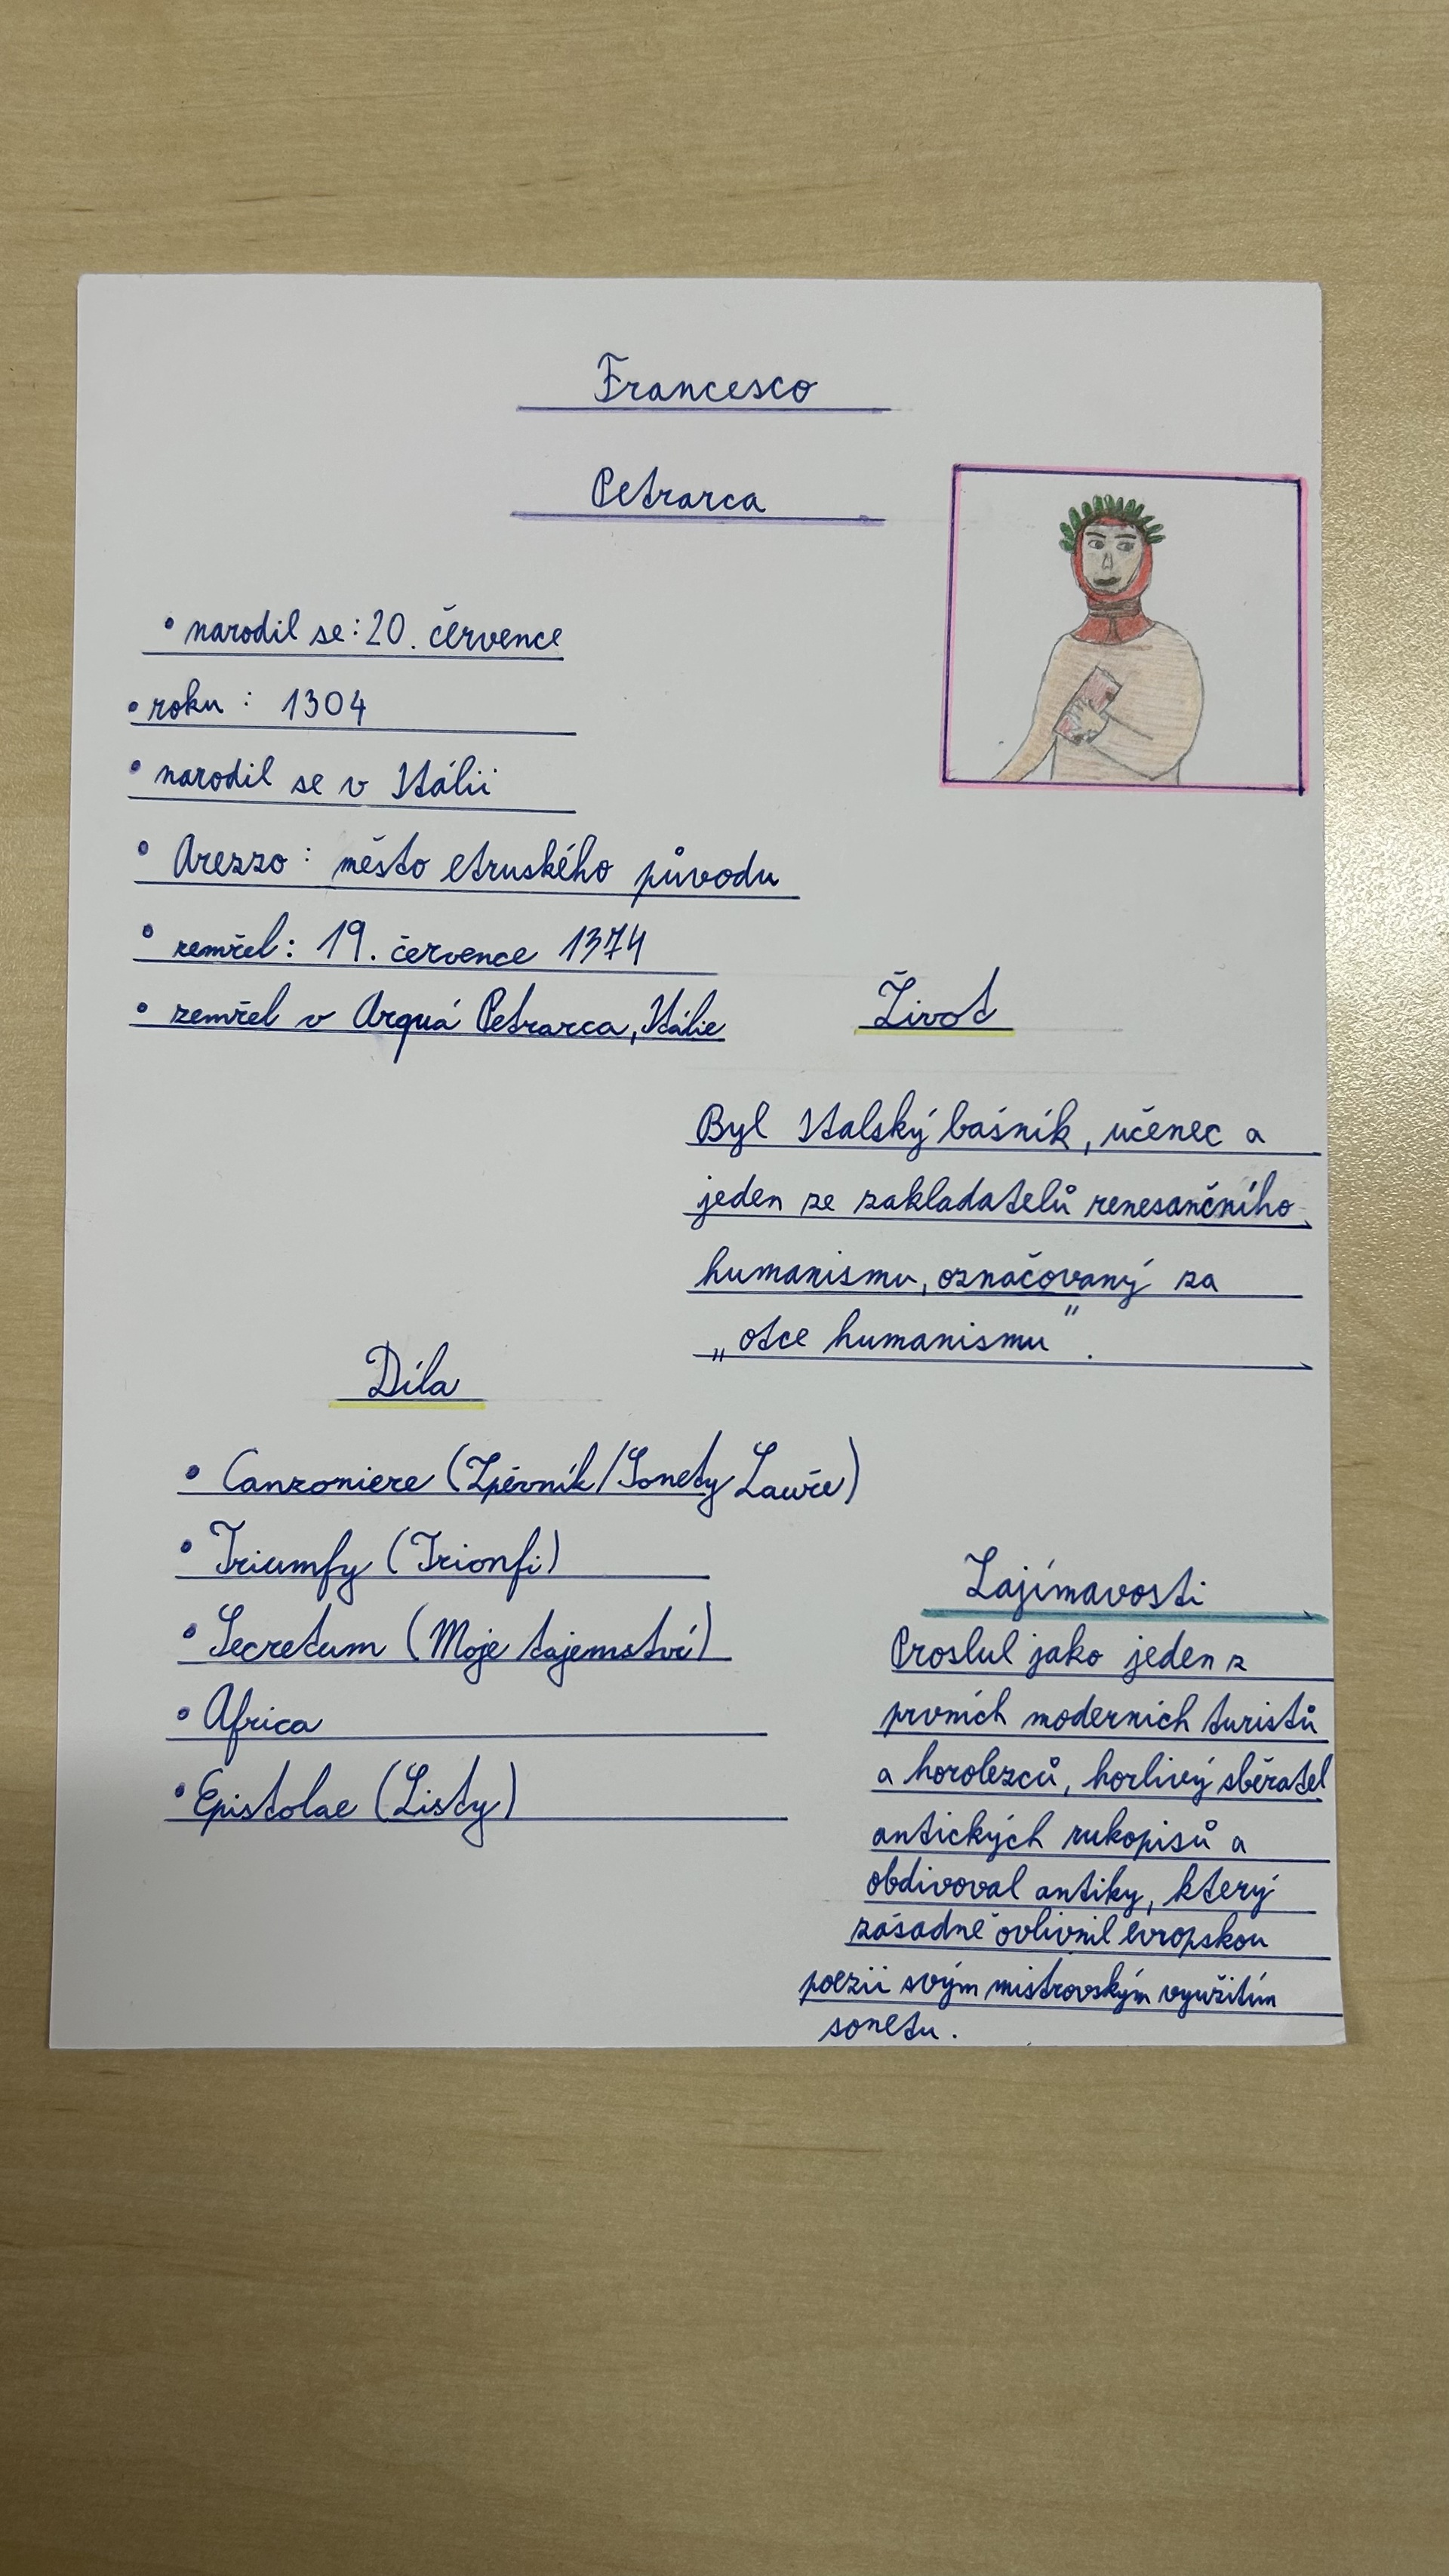 Francesco
Petrarca
• narodil se: 20. července
• roku: 1304
• narodil se v Itálii
• Arezzo: město etruského původu
• zemřel: 19. července 1374
• zemřel v Arquá Petrarca, Itálie
Život
Byl Italský báśník, učenec a
jeden ze zakladatelů renesančního
humanismu, označovaný za
„otce humanismu".
Díla
• Canzoniere (Zpěvník/Sonety Lauře)
• Triumfy (Trionfi)
• Secretum (Moje tajemství)
• Africa
• Epistolae (Listy)
Zajímavosti
Proslul jako jeden z
prvních moderních turistů
a horolezců, horlivý sběratel
antických rukopisů a
obdivoval antiky, který
zásadně ovlivnil evropskou
poezii svým mistrovským využitím
sonetu.